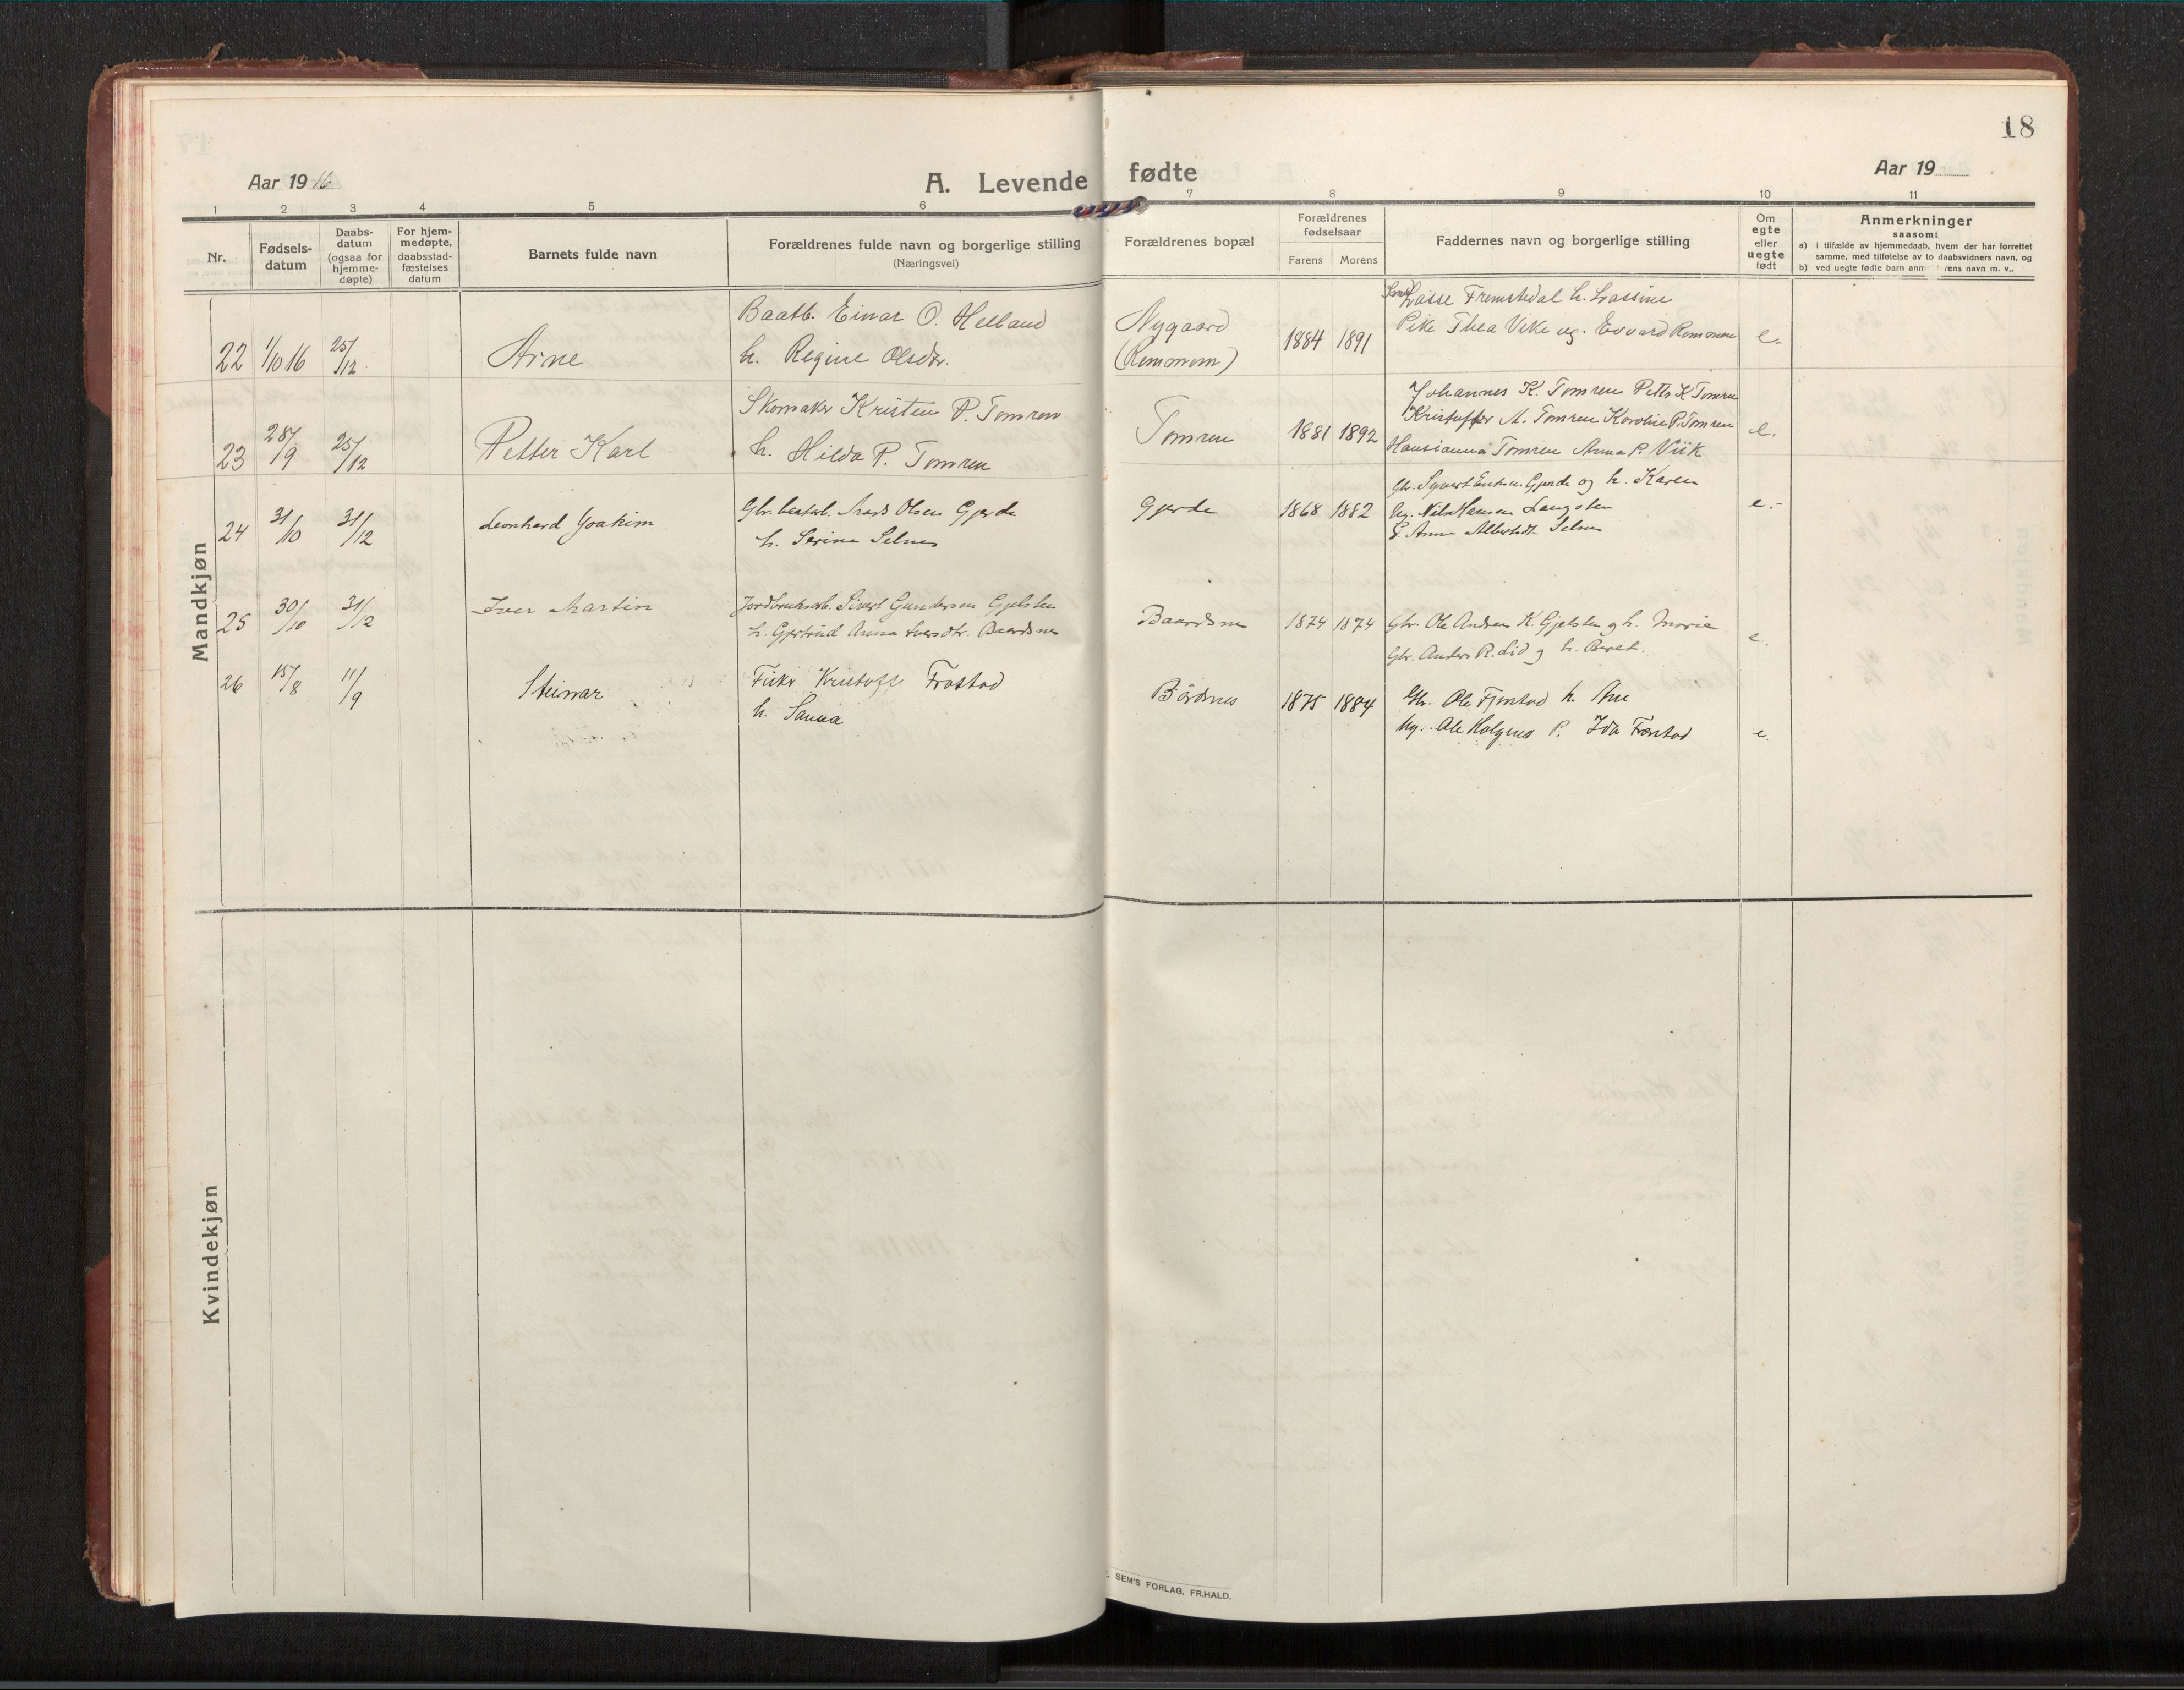 18
Aar 1916
A. Levende fødte
Aar 19
1 2 3 4 5 6 7 8 9 10 11
Nr.
Fødsels-
datum
Daabs-
datum
(ogsaa for
hjemme-
døpte)
For hjem-
medøpte,
daabsstad-
fæstelses
datum
Barnets fulde navn
Forældrenes fulde navn og borgerlige stilling
(Næringsvei)
Forældrenes bopæl
Forældrenes
fødselsaar
Farens Morens
Faddernes navn og borgerlige stilling
Om
egte
eller
uegte
født
Anmerkninger
saasom:
a) i tilfælde av hjemmedaab, hvem der har forrettet
samme, med tilføielse av to daabsvidners navn, og
b) ved uegte fødte barn rens navn m. v.
Mandkjøn
22 1/10 16 25/12. Arne
Baatb. Einar O. Helland
h. Regine Olsdtr.
Nygaard
(Remmem)
1884 1891
Lasse Fremstedal h. Lassine
Pike Thea Vike ug. Edvard Remmem
e.
23 28/9 25/12 Petter Karl
Skomaker Kristen P. Tomren
h. Hilda P. Tomren
Tomren 1881 1892
Johannes K. Tomren Petter K Tomren
Kristoffer A. Tomren Karoline P. Tomren
Hansianna Tomren Anna P. Viik
e.
24 31/10 31/12 Leonhard Joakim
Gbr. Mads Olsen Gjerde
h. Serine Selnes
Gjerde 1868 1882
Gbr. Syvert Gjerde og h. Karen
Ug. Nils Hansen Langsten
P. Anna Selnes
e.
25 30/10 31/12 Iver Martin
Sivert Gundersen Gjelsten
h. Gjertrud Anna Iversdtr. Baardsnes
Baardsnes 1874 1874
Gbr. Ole Andreas K. Gjelsten og h. Marie
Gbr. Anders R. Lid og h. Beret.
e.
26 15/8 11/9 Steinar
Fisker Kristoffer Frostad
h. Sanna
Bårdsnes 1875 1884
Gbr. Ole h. Ane
Ug. Ole P. Ida
e.
Kvindekjøn
SEM'S FORLAG, FR.HALD.